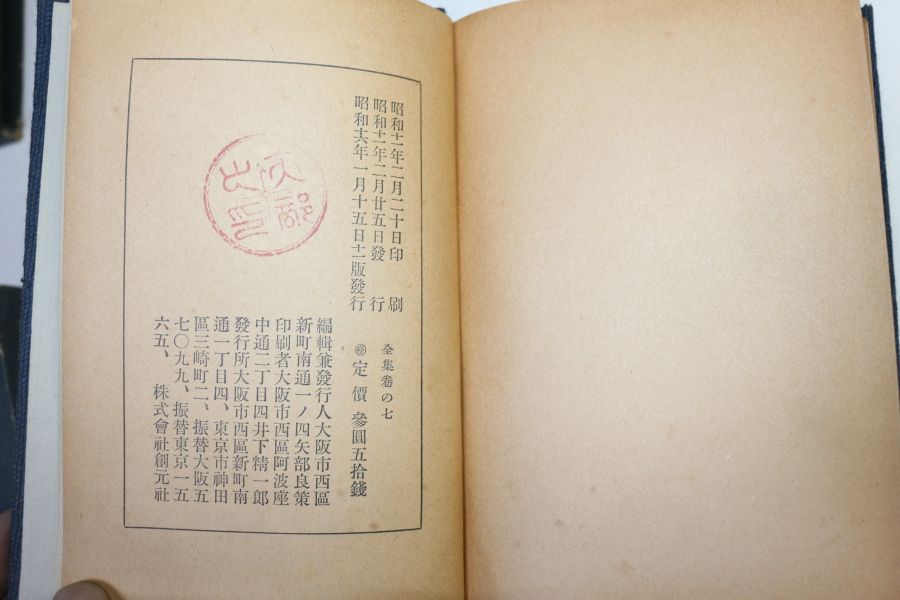 昭和十一年二月二十日印刷
昭和十一年二月廿五日發行
昭和十六年一月十五日十一版發行
全集卷の七
㊕定價參圓五拾錢
編輯兼發行人大阪市西區
新町南通一ノ四矢部良策
印刷者大阪市西區阿波座
中通二丁目四井下精一郎
發行所大阪市西區新町南
通一丁目四、東京市神田
區三崎町二、振替大阪五
七〇九九、振替東京一五
六五、株式會社創元社